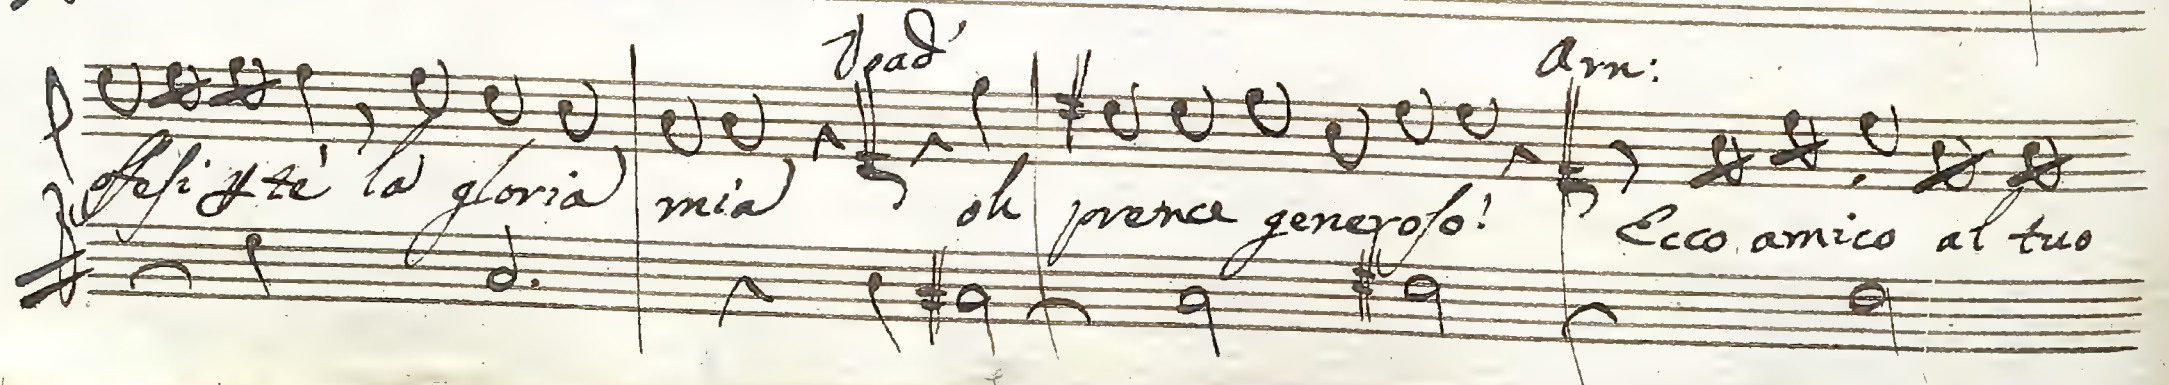 Spad' Arn:
offesi p te la gloria mia oh prence generoso! Ecco amico al tuo